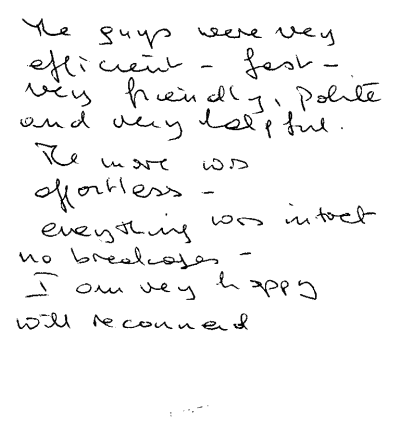 The guys were very
efficient - fast -
very friendly, polite
and very helpful.
The move was
effortless -
everything was intact
no breakages -
I am very happy
will recommend